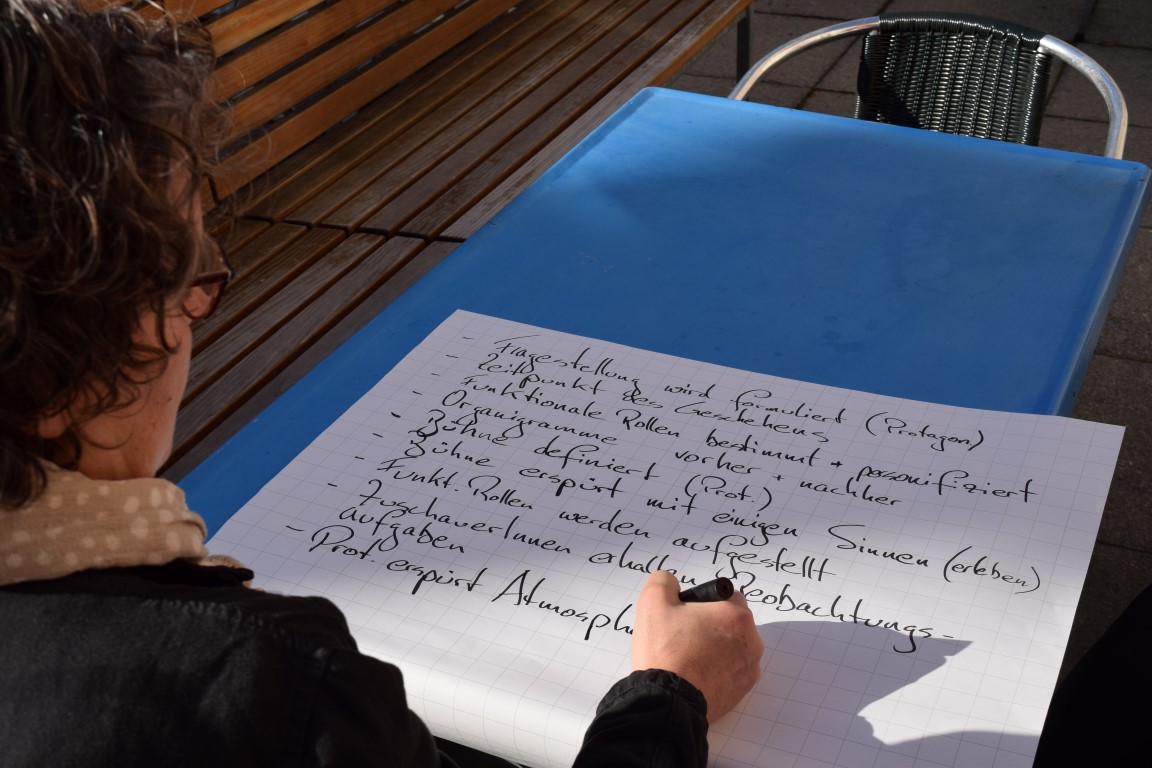 - Fragestellung wird formuliert (Protagon)
- Zeitpunkt des Geschehens
- Funktionale Rollen bestimmt + personifiziert
- Organigramme vorher + nachher
- Bühne definiert (Prot.)
- Bühne erspürt mit einigen Sinnen (erleben)
- Funkt. Rollen werden aufgestellt
- ZuschauerInnen erhalten Beobachtungs-
aufgaben
- Prot. erspürt Atmosph